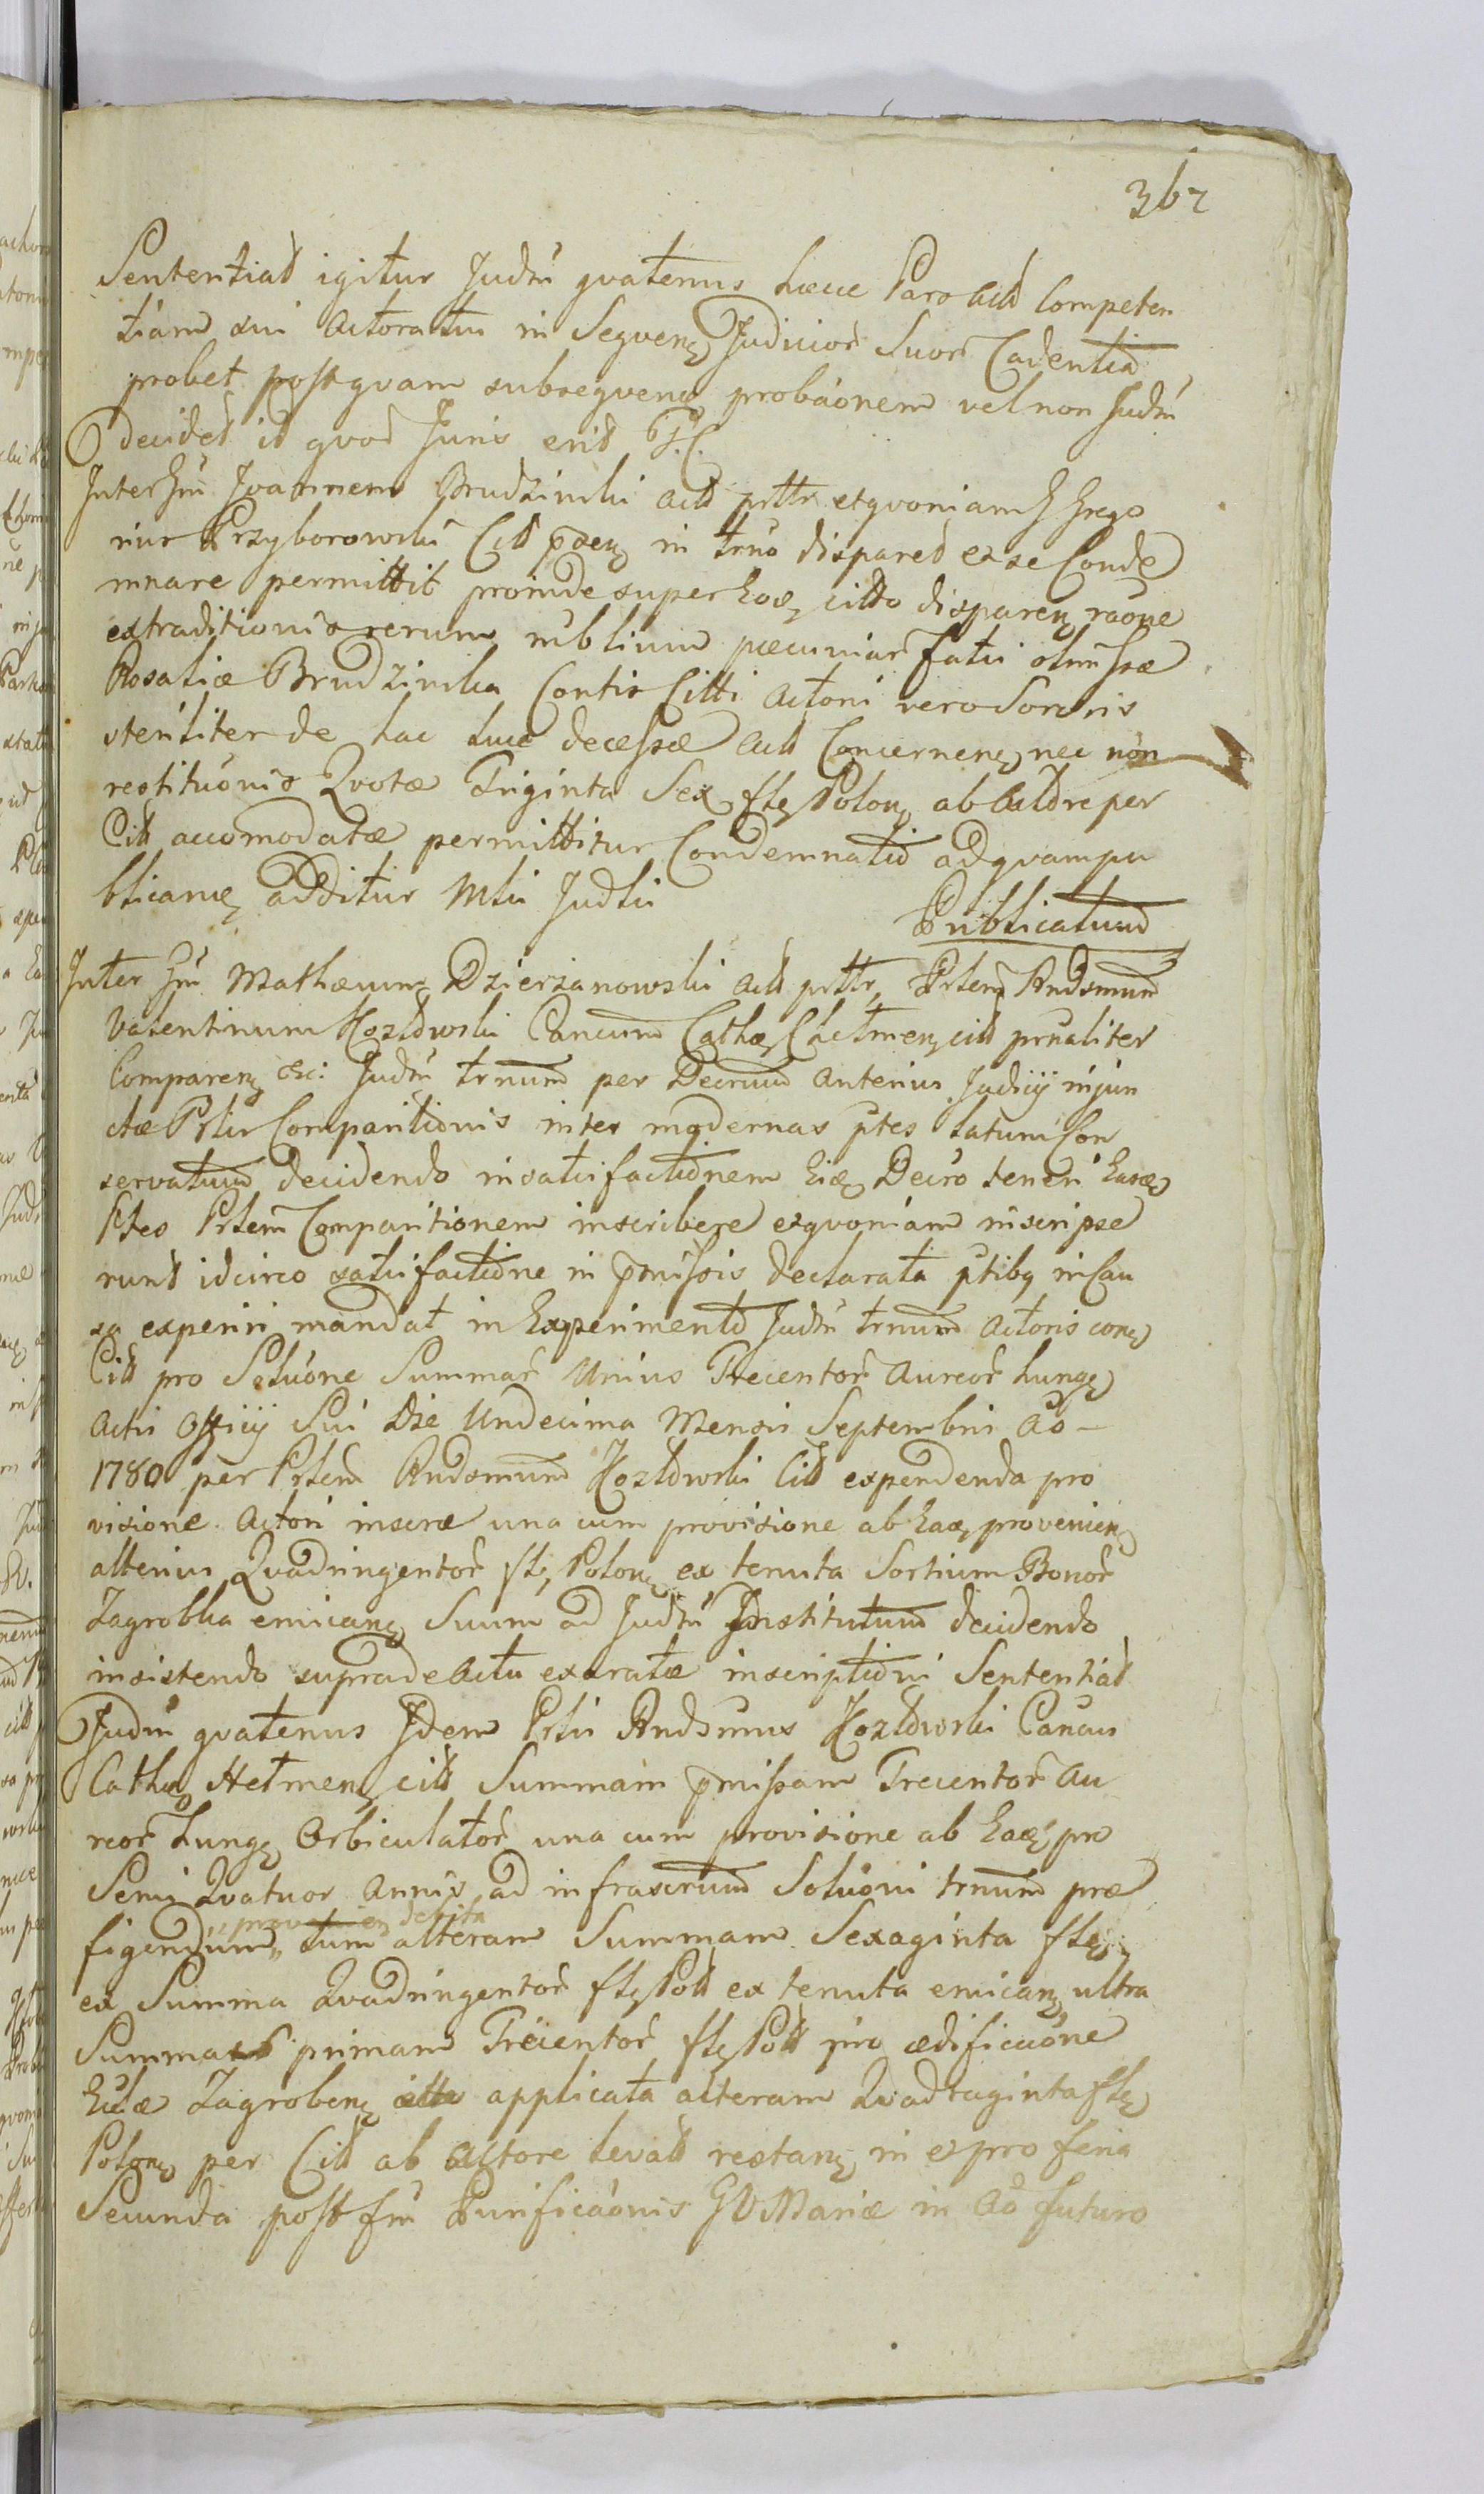 367
Sententiat igitur Judm̄ qvatenus hæcce Pars Act Competen
tiam sui Actoratus in Seqven: Judicior̄ Suor̄ Cadentia
probet postqvam subseqvenę probaōnem vel non Judm̄
decidet id qvod Juris erit P. C.
Inter Gm̄ Joannem Brudzinski Act prttr, et qvoniam G Grego
rius Przyborowski Citt p̄sens in trno disparet et se Conde
mnare permittit proinde super Eoę citto disparenę raōne
extraditionis rerum mblium pæcuniar̄ fati olim Gsæ
Rosaliæ Brudzinska Contis Citti Actori vero Sororis
steriliter de hac luce decessæ Act Concernenę nec non
restituōnis Qvotæ Triginta Sex fl: Polonę ab Actore per
Citt accomodatæ permittitur Condemnatio ad qvam pu
blicanę additur Mlis Judlis
Publicatum
Inter Gm̄ Mathæum Dzierzanowski Act prttr, Prlem Rndsmum
Valentinum Kozłowski Cancum Cathæ Chełmenę citt prnaliter
Comparenę &c: Judm̄ trnum per Decrum Anterius Judicij injun
ctæ Prlis Comparitionis inter modernas ptes latum Con
servatum decidendo in satisfactionem Ejæ Decro teneri Easę
Ptes Prlem Comparitionem inscribere et qvoniam inscripse
runt idcirco satisfactione in p̄missis declarata ptibq in Cau
sa experiri mandat in Experimento Judm̄ trnum Actoris conę
Citt pro Soluōne Summar̄ Unius Trecentor̄ Aureor̄ hungę
Actis Officij Sui Die Undecima Mensis Septembris Aō
1780 per Prlem Rndsmum Kozłowski Citt expendenda pro
visione Actori inscræ una cum provisione ab Eaę provenienę
alterius Qvadringentor̄ fl: Polonę ex tenuta Sortium Bonor̄
Zagrobka emicanę Suum ad Judm̄ Institutum decidendo
insistendo suprade Actu exaratæ inscriptioni Sententiat
Judm̄ qvatenus Idem Prlis Rndsmus Kozłowski Cancus
Cathæ Hełmenę citt Summam p̄missam Trecentor̄ Au
reor̄ hungę Orbiculator̄ una cum provisione ab Eaę pro
Semi Qvatuor Annis ad infrascrum Soluōni trnum præ
figendum debita tum alteram Summam Sexaginta fl:
ex Summa Qvadringentor̄ fl: Poll ex tenuta emicanę ultra
Summam primam Trecentor̄ fl: Poll pro ædificaōne
Eccl̄æ Zagrobenę applicata alteram Qvadraginta fl:
Polonę per Citt ab Actore levatt restanę in et pro feria
Secunda post fm̄ Purificaōnis G V Mariæ in Aō futuro